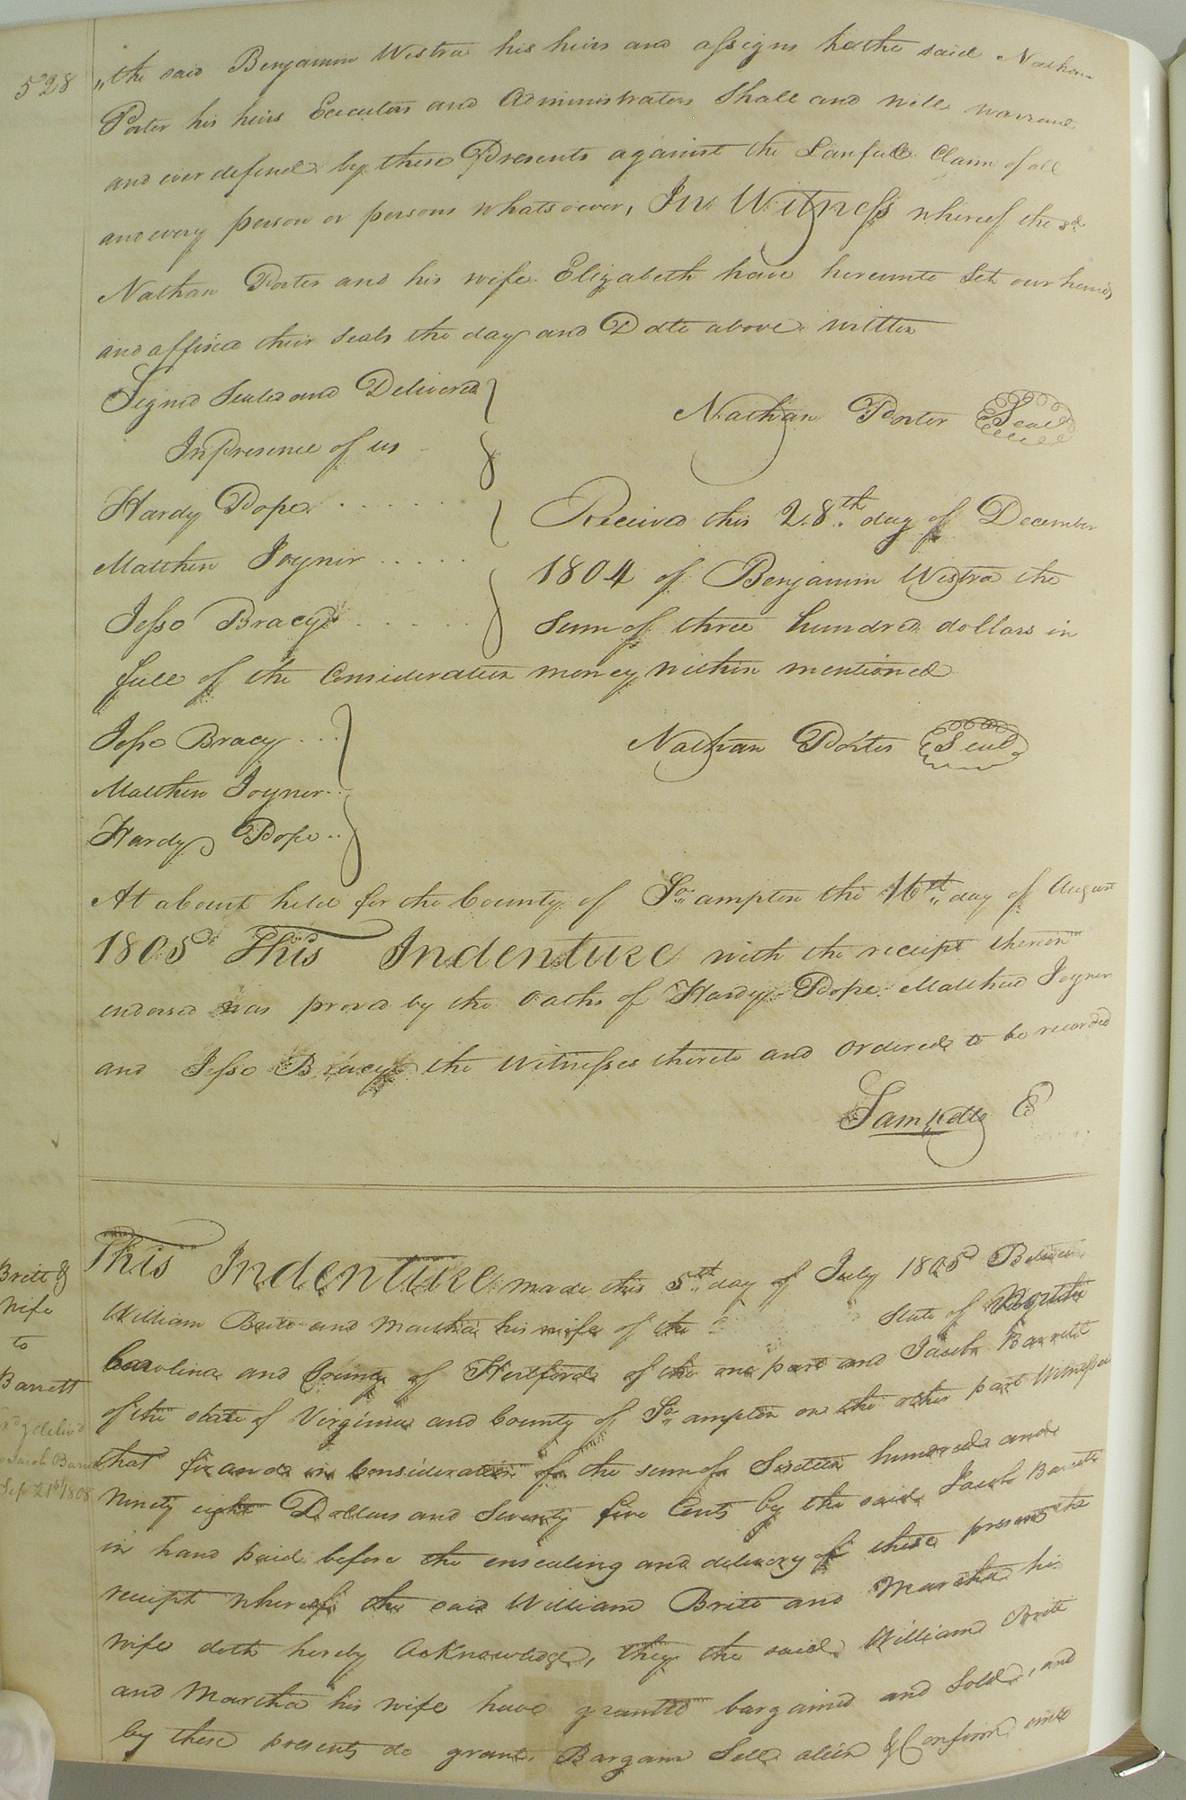 528
"the said Benjamin Westra his heirs and assigns he the said Nathan
Porter his heirs Executors and Administrators Shall and will warrant
and ever defend by these Presents against the Lawfull Claim of all
and every person or persons whatsoever, In Witness whereof the sd.
Nathan Porter and his wife Elizabeth have hereunto Set our hands
and affixed their seals the day and Date above written
Signd Seald and Deliverd
In Presence of us
Nathan Porter Seal
Hardy Pope
Matthew Joyner
Jesse Bracy
Received this 28th day of December
1804 of Benjamin Westra the
Sum of three hundred dollars in
full of the Consideration money within mentioned
Jesse Bracy
Matthew Joyner
Hardy Pope
Nathan Porter Seal
At a Court held for the County of So.ampton the 16th day of August
1805 This Indenture with the receipt thereon
endorsed was proved by the oaths of Hardy Pope Matthew Joyner
and Jesse Bracy the Witnesses thereto and Ordered to be recorded
Sam Kello C
Britt &
wife
to
Barrett
delivd
Jacob Barrett
Sep 21st 1808
This Indenture made this 5th day of July 1805 Between
William Britt and Martha his wife of the State of North
Carolina and County of Hertford of the one part and Jacob Barrett
of the state of Virginia and County of So.ampton on the other part Witnesseth
that for and in Consideration of the sum of Sixteen hundred and
Ninety eight Dollars and Seventy five Cents by the said Jacob Barrett
in hand paid before the ensealing and delivery of these presents the
receipt whereof the said William Britt and Martha his
wife doth hereby Acknowledge, they the said William Britt
and Martha his wife have granted bargained and Sold, and
by these presents do grant Bargain Sell alien & Confirm unto